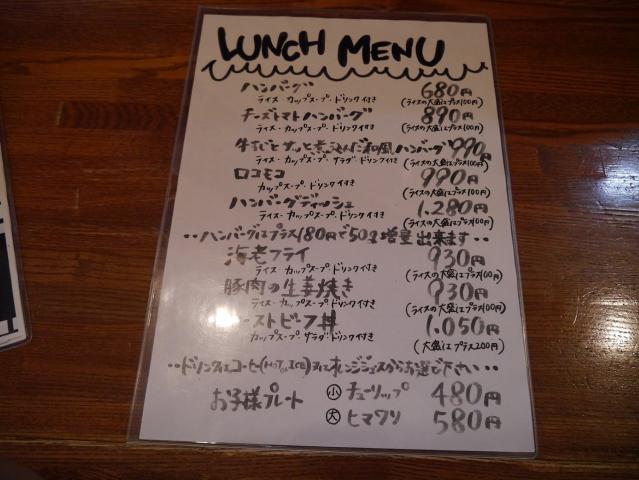 LUNCH MENU
ハンバーグ 680円
ライス・カップスープ・ドリンク付き (ライスの大盛はプラス100円)
チーズトマトハンバーグ 890円
ライス・カップスープ・ドリンク付き (ライスの大盛はプラス100円)
牛すじと 煮込んだ和風ハンバーグ 990円
ライス・カップスープ・サラダ・ドリンク付き (ライスの大盛はプラス100円)
ロコモコ 990円
カップスープ・ドリンク付き (ライスの大盛はプラス100円)
ハンバーグディッシュ 1,280円
ライス・カップスープ・ドリンク付き (ライスの大盛はプラス100円)
・・ハンバーグはプラス180円で50g増量出来ます・・
海老フライ 930円
ライス・カップスープ・ドリンク付き (ライスの大盛はプラス100円)
豚肉の生姜焼き 930円
ライス・カップスープ・ドリンク付き (ライスの大盛はプラス100円)
ーストビーフ丼 1,050円
カップスープ・サラダ・ドリンク付き (大盛はプラス200円)
・・ドリンクはコーヒー(HOT or ICE) オレンジジュースからお選び下さい・・
お子様プレート ㊙小 チューリップ 480円
大 ヒマワリ 580円